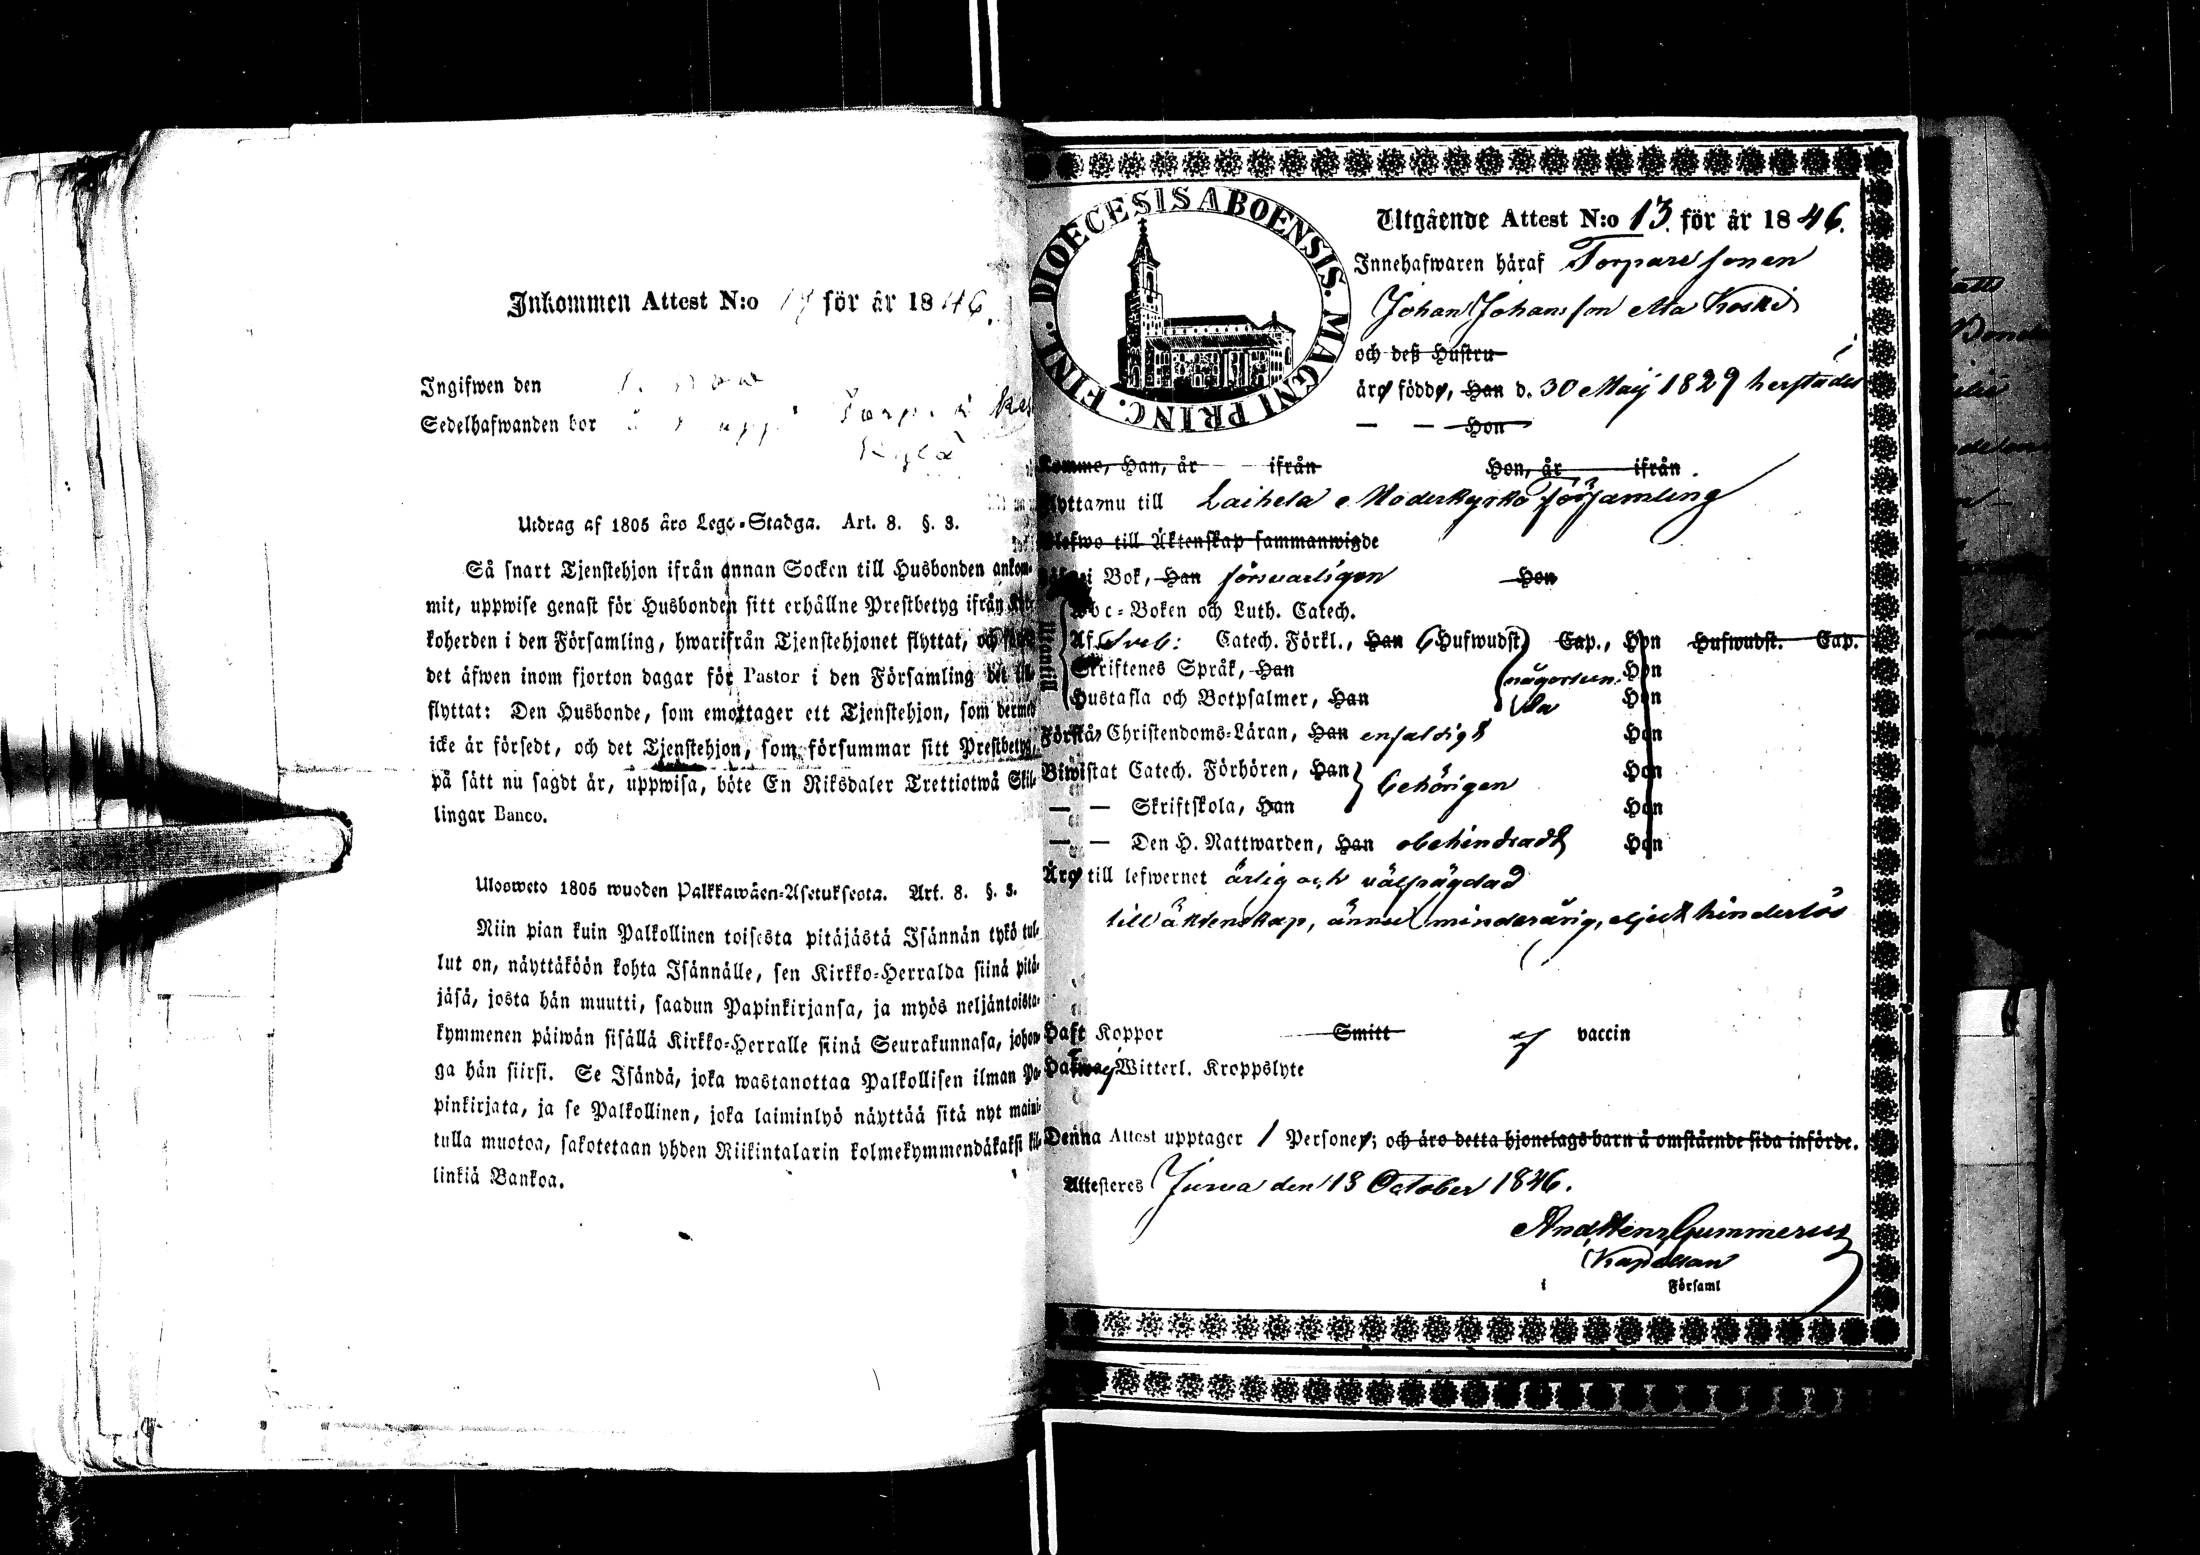 Inkommen Attest N:o 17 för år 1846.
Ingifwen den
Sedelhafwanden bor
Utdrag af 1805 års Lego-Stadga. Art. 8. §. 3.
Så snart Tjenstehjon ifrån annan Socken till Husbonden ankom-
mit, uppwise genast för Husbonden sitt erhållne Prestbetyg ifrån Kyr-
koherden i den Församling, hwarifrån Tjenstehjonet flyttat, och
det äfwen inom fjorton dagar för Pastor i den Församling det
flyttat: Den Husbonde, som emottager ett Tjenstehjon, som dermed
icke är försedt, och det Tjenstehjon, som försummar sitt Prestbetyg,
på sätt nu sagdt är, uppwisa, böte En Riksdaler Trettiotwå Skil-
lingar Banco.
Ulosweto 1805 wuoden Palkkawäen-Asetuksesta. Art. 8. §. 3.
Niin pian kuin Palkollinen toisesta pitäjästä Isännän tykö tul-
lut on, näyttäköön kohta Isännälle, sen Kirkko-Herralda siinä pitä-
jäsä, josta hän muutti, saadun Papinkirjansa, ja myös neljäntoista-
kymmenen päiwän sisällä Kirkko-Herralle siinä Seurakunnasa, johon-
ga hän siirsi. Se Isändä, joka wastanottaa Palkollisen ilman Pa-
pinkirjata, ja se Palkollinen, joka laiminlyö näyttää sitä nyt maini-
tulla muotoa, sakotetaan yhden Riikintalarin kolmekymmendäkaksi kil-
linkiä Bankoa.
DIOECESIS ABOENSIS. MAGNI PRINC. FINL.
Utgående Attest N:o 13. för år 1846.
Innehafwaren häraf Torpare sonen
Johan Johansson Ala Koski
och deß Hustru
äro födde, Han d. 30 Maij 1829 härstädes
— — Hon
Komme, Han, år — ifrån Hon, år ifrån
Flytta nu till Laihela Moderkyrko Församling
Blefwo till Äktenskap sammanwigde
i Bok, Han försvarligen Hon
Utantill
Abc-Boken och Luth. Catech.
Af Sveb: Catech. Förkl., Han 6 Hufwudst. Cap., Hon Hufwudst. Cap.
Skriftenes Språk, Han någorlun Hon
Hustafla och Botpsalmer, Han da Hon
Förstår Christendoms-Läran, Han enfaldigt Hon
Biwistat Catech. Förhören, Han behörigen Hon
— — Skriftskola, Han Hon
— — Den H. Nattwarden, Han obehindradt Hon
Äro till lefwernet ärlig och välfrägdad
till äktenskap, ännu minderårig, ej hinderlös
Haft Koppor Smitt af vaccin
Witterl. Kroppslyte
Denna Attest upptager 1 Personer; och äro detta hjonelags barn å omstående sida införde.
Attesteres Jurva den 13 October 1846.
And Henr Gummerus
Kapellan
i Församl